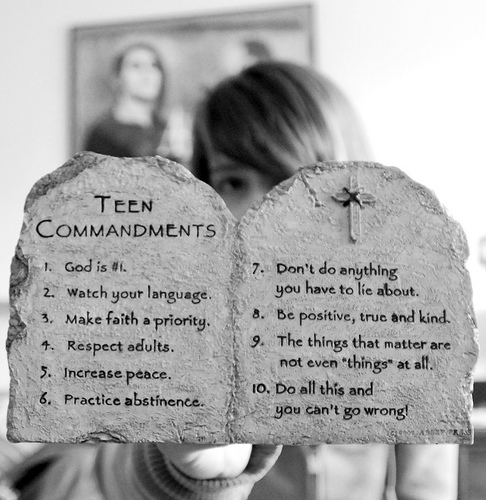 TEEN
COMMANDMENTS
1. God is #1.
2. Watch your language.
3. Make faith a priority.
4. Respect adults.
5. Increase peace.
6. Practice abstinence.
7. Don't do anything
you have to lie about.
8. Be positive, true and kind.
9. The things that matter are
not even "things" at all.
10. Do all this and
you can't go wrong!